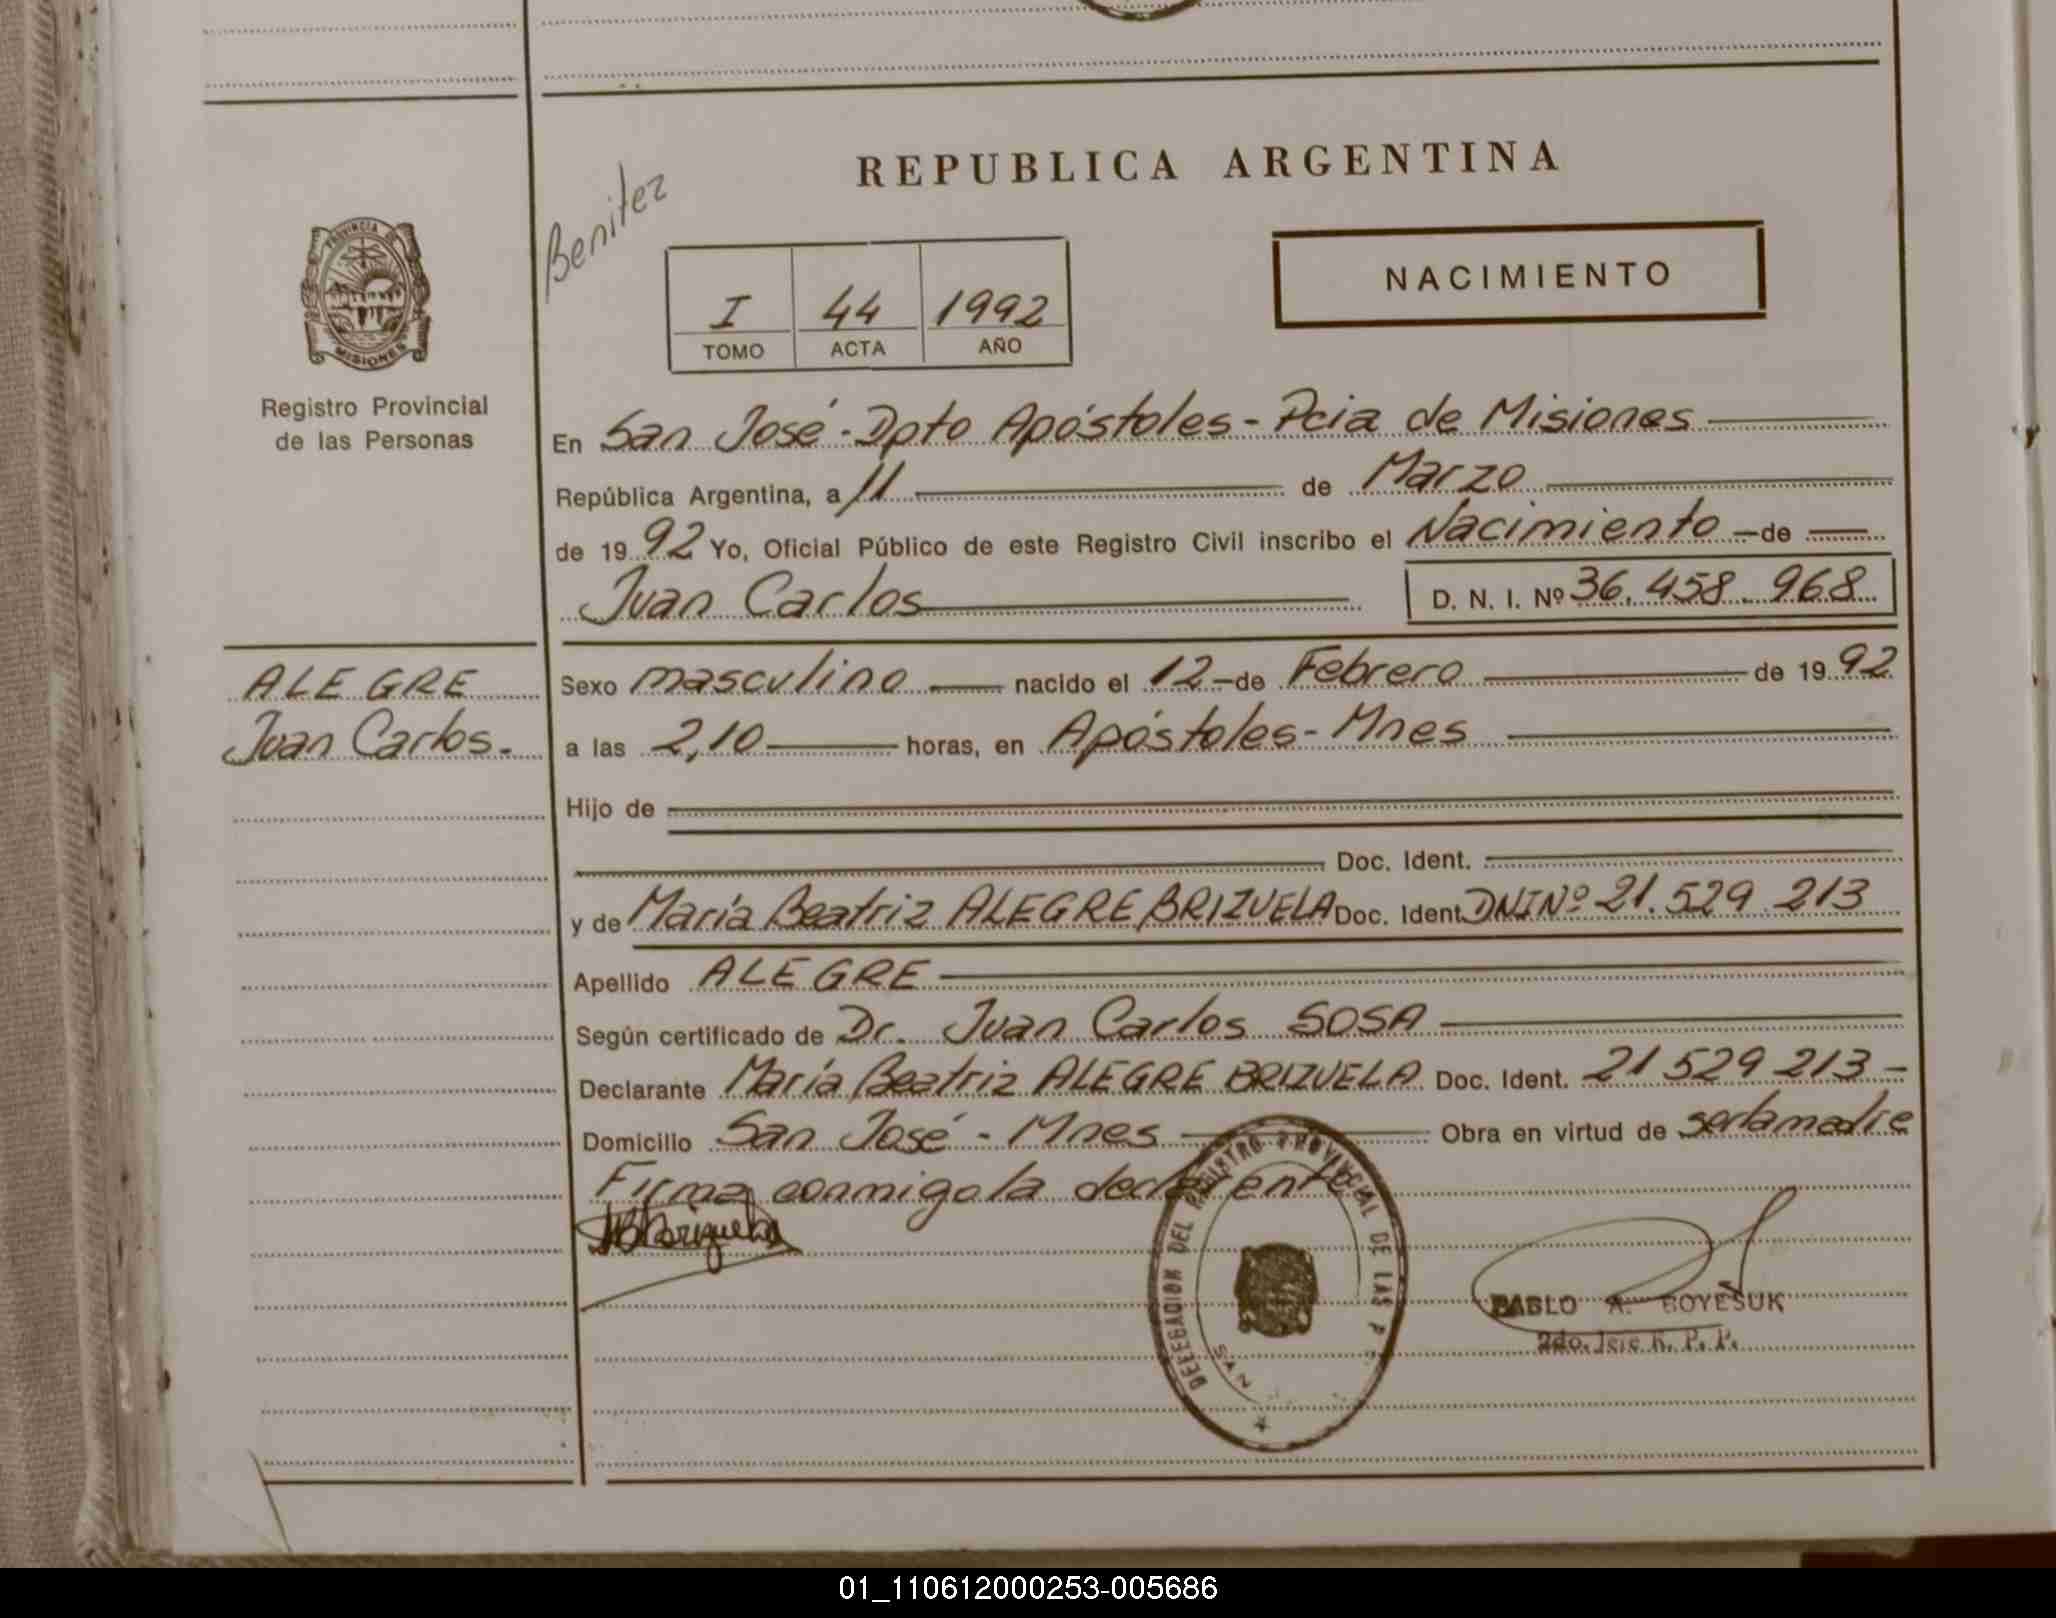 REPUBLICA ARGENTINA
Benitez
NACIMIENTO
I 44 1992
TOMO ACTA AÑO
PROVINCIA DE
MISIONES
Registro Provincial
de las Personas
En San José - Dpto Apóstoles - Pcia de Misiones
República Argentina, a 11 de Marzo
de 1992 Yo, Oficial Público de este Registro Civil inscribo el Nacimiento - de
Juan Carlos D. N. I. Nº 36.458.968
ALEGRE
Juan Carlos.-
Sexo masculino nacido el 12 - de Febrero de 1992
a las 2,10 horas, en Apóstoles - Mnes
Hijo de
Doc. Ident.
y de María Beatriz ALEGRE BRIZUELA Doc. Ident. DNI Nº 21.529.213
Apellido ALEGRE
Según certificado de Dr. Juan Carlos SOSA
Declarante María Beatriz ALEGRE BRIZUELA Doc. Ident. 21 529 213 -
Domicilio San José - Mnes Obra en virtud de ser la madre
Firma conmigo la declarente
DELEGACION DEL REGISTRO PROVINCIAL DE LAS P
SAN
PABLO A. BOYESUK
2do. Jefe R. P. P.
01_110612000253-005686